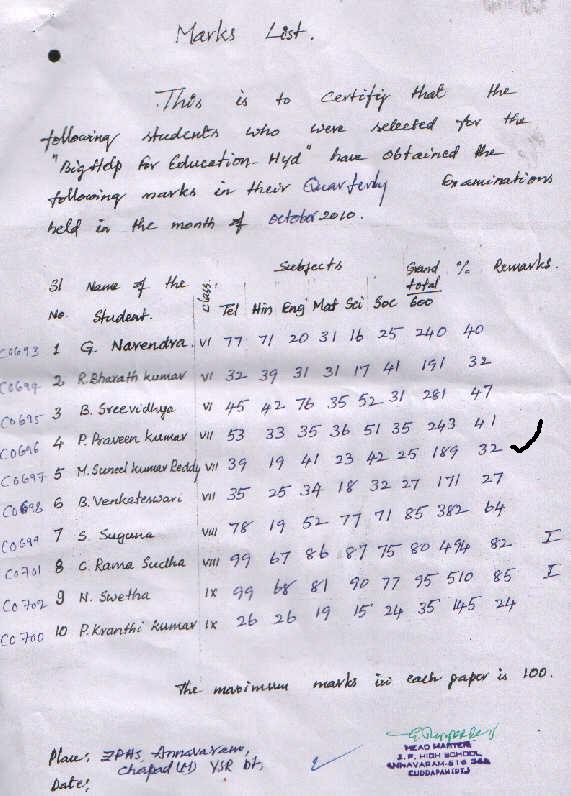 Marks List.
This is to Certify that the
following students who were selected for the
"Big Help For Education - Hyd" have obtained the
following marks in their Quarterly Examinations
held in the month of October 2010.
Sl No. Name of the Student. Class. Subjects Tel Hin Eng Mat Sci Soc Grand total 600 % Remarks.
C0693 1 G. Narendra VI 77 71 20 31 16 25 240 40
C0694 2 R. Bharath kumar VI 32 39 31 31 17 41 191 32
C0695 3 B. Sreevidhya VI 45 42 76 35 52 31 281 47
C0696 4 P. Praveen kumar VII 53 33 35 36 51 35 243 41
C0697 5 M. Suneel kumar Reddy VII 39 19 41 23 42 25 189 32
C0698 6 B. Venkateswari VII 35 25 34 18 32 27 171 27
C0699 7 S. Suguna VIII 78 19 52 77 71 85 382 64
C0701 8 C. Rama Sudha VIII 99 67 86 87 75 80 494 82 I
C0702 9 N. Swetha IX 99 68 81 90 77 95 510 85 I
C0700 10 P. Kranthi kumar IX 26 26 19 15 24 35 145 24
The maximum marks in each paper is 100.
Place: ZPHS, Annavaram,
Chapad YSR Dt,
Date:
HEAD MASTER
Z. P. HIGH SCHOOL
ANNAVARAM-516
CUDDAPAH (DT)